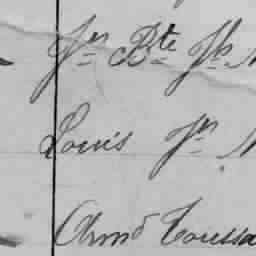 Jn Bte Jh
Louis Jn
Armd Toussa